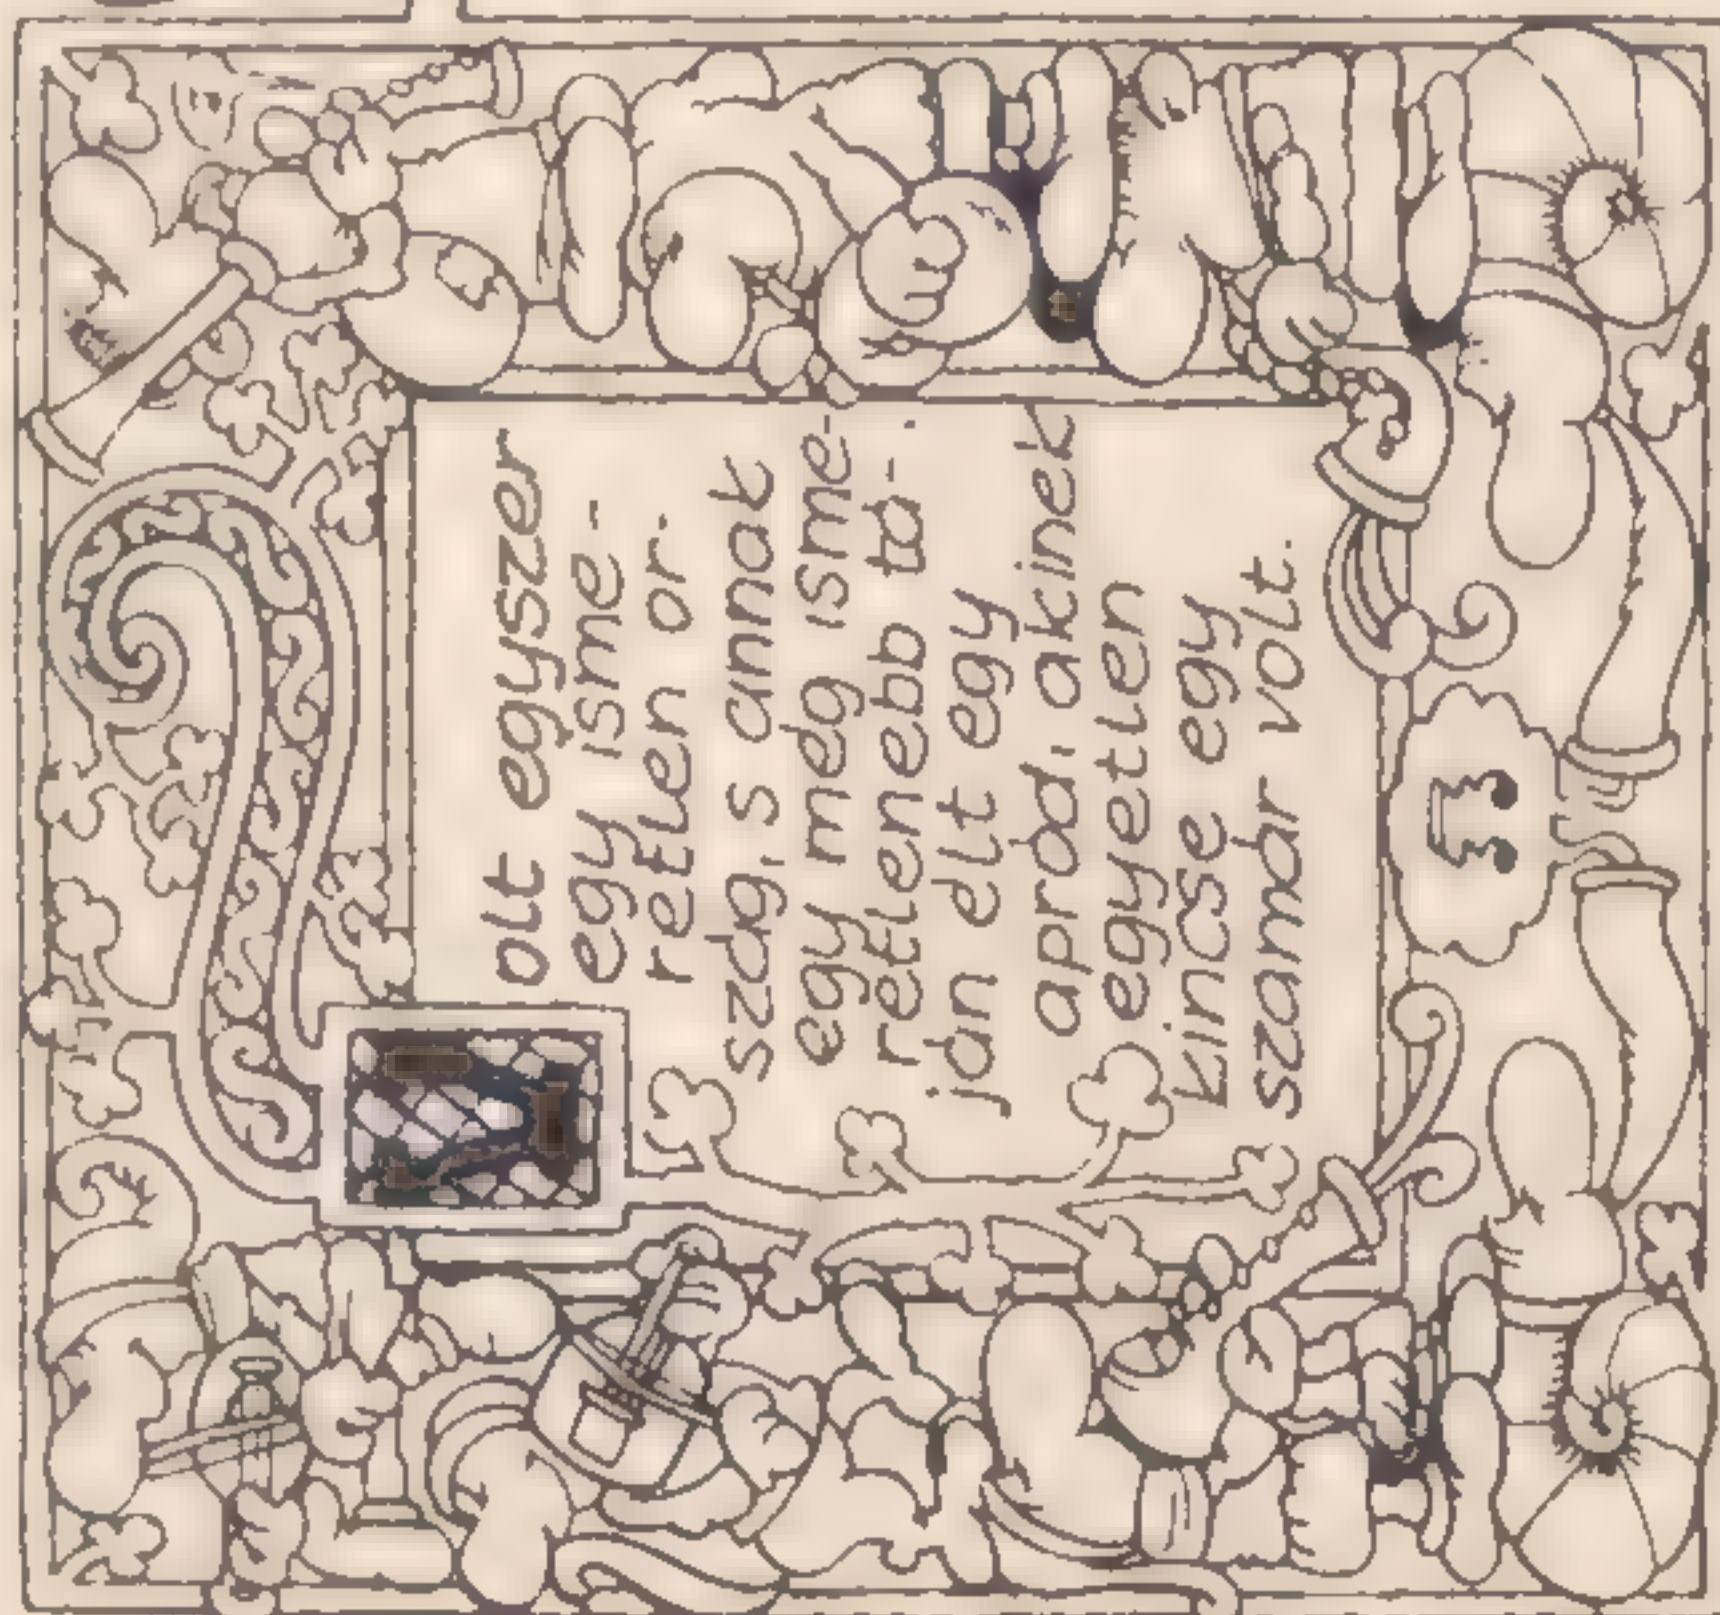 Volt egyszer
egy isme-
retlen or-
szág, s annak
egy még isme-
retlenebb tá-
ján élt egy
apród, akinek
egyetlen
kincse egy
szamár volt.